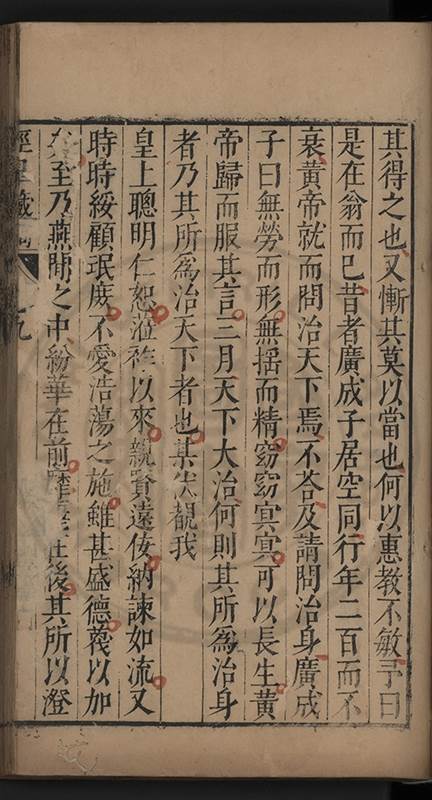 其得之也又慚其莫以當也何以惠教不敏予曰
是在翁而已昔者廣成子居空同行年二百而不
衰黃帝就而問治天下焉不荅及請問治身廣成
子曰無勞而形無揺而精窈窈冥冥可以長生黃
帝歸而服其言三月天下大治何則其所為治身
者乃其所為治天下者也某伏覩我
皇上聰明仁恕蒞祚以來親賢遠佞納諫如流又
時時綏顧珉庻不愛浩蕩之施雖甚盛德蔑以加
矣至乃燕閒之中紛華在前在後其所以澄
九